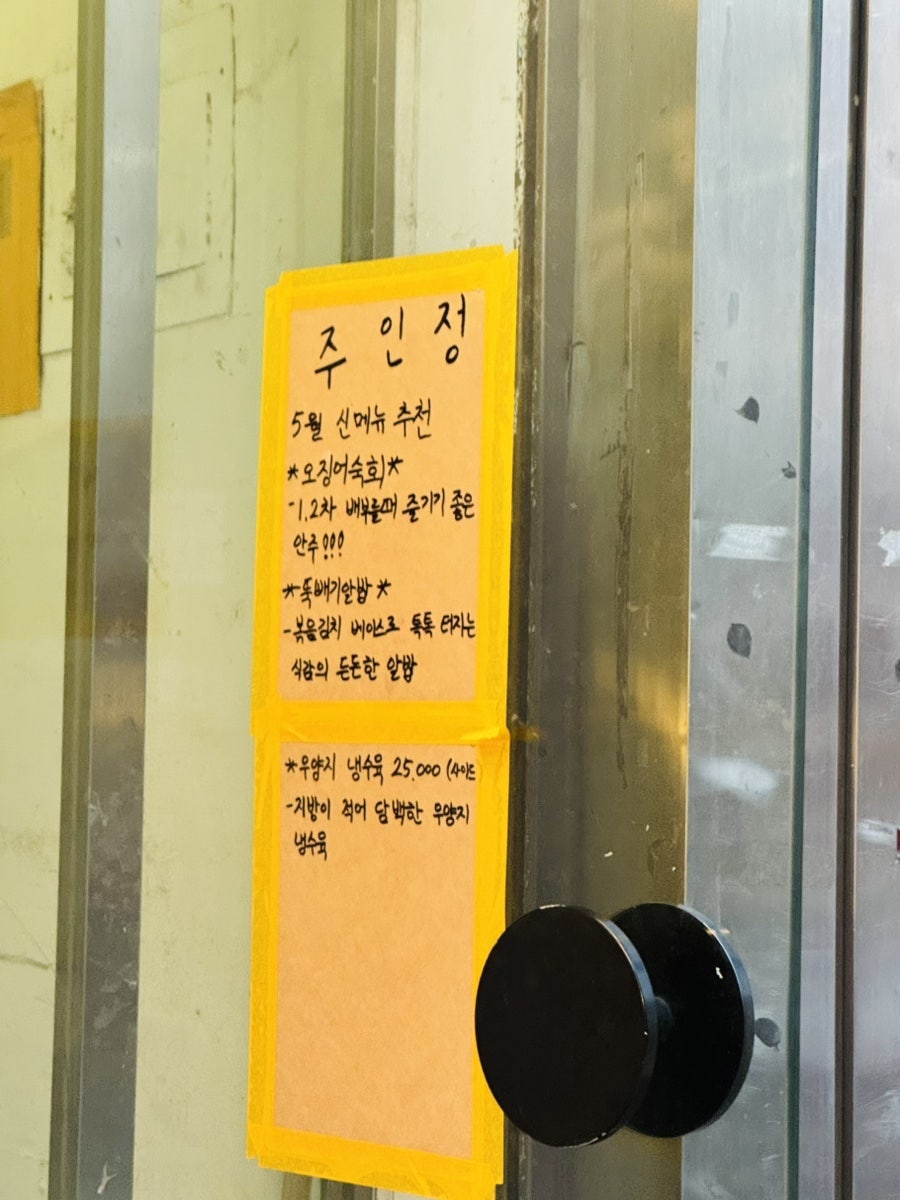 주 인 정
5월 신메뉴 추천
*오징어숙회*
-1.2차 배부를때 즐기기 좋은
안주!!!
*뚝배기알밥*
-볶음김치 베이스로 톡톡 터지는
식감의 든든한 알밥
*우양지 냉수육 25.000 (사이드
-지방이 적어 담백한 우양지
냉수육